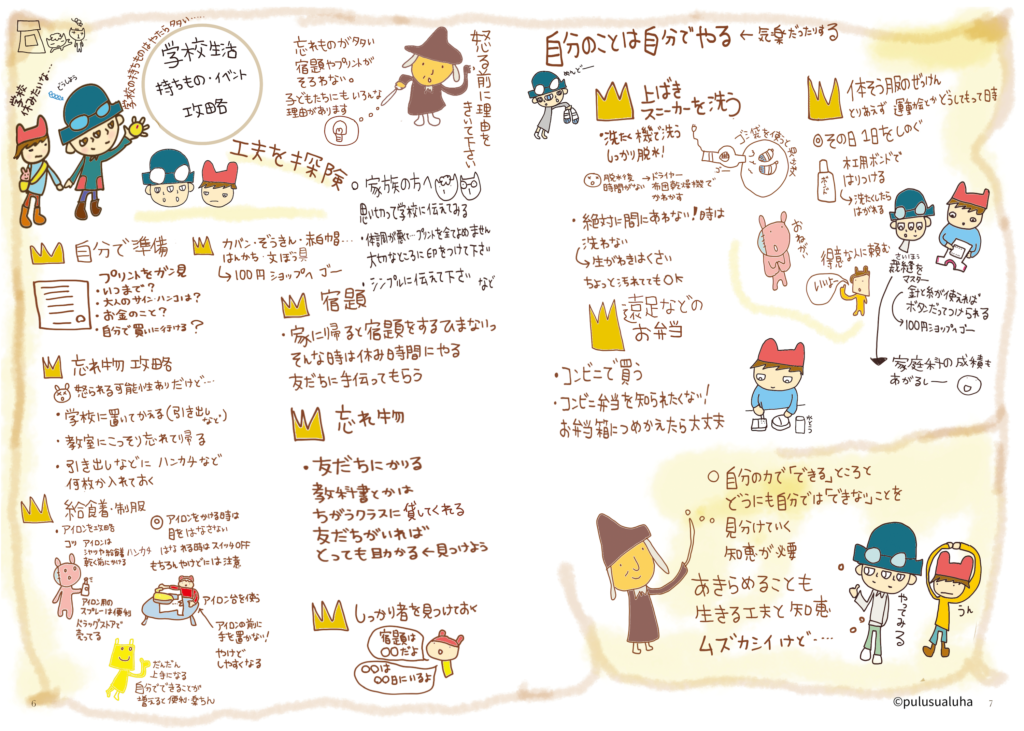 学校生活
持ちもの・イベント
攻略
学校の持ちものはやったらタタい・・・・
学校
休みたいな…
どうしよう
工夫を探険
忘れものがタタい
宿題やプリントが
そろわない。
子どもたちにもいろんな
理由があります
怒る前に理由を
きいて下さい
家族の方へ
思い切って学校に伝えてみる
・体調が悪くてプリントを全てよめません
大切なところに印をつけて下さい
・シンプルに伝えて下さい など
自分で準備
プリントをガン見
・いつまで？
・大人のサイン・ハンコは？
・お金のこと？
・自分で買いに行ける？
カバン・ぞうきん・赤白帽…
はんかち・文ぼう具
→100円ショップへゴー
忘れ物攻略
怒られる可能性ありだけど…
・学校に置いてかえる(引き出しなど)
・教室にこっそり忘れて帰る
・引き出しなどにハンカチなど
何枚か入れておく
給食着・制服
アイロンを攻略
コツ アイロンは
シャツや給食着 ハンカチ
乾く前にかける
アイロン用の
スプレーは便利
ドラッグストアで
売ってる
◎アイロンをかける時は
目をはなさない
はなれる時はスイッチOFF
もちろんやけどには注意
アイロン台を使う
アイロンの前に
手を置かない!
やけど
しやすくなる
だんだん
上手になる
自分でできることが
増えると便利・楽ちん
宿題
・家に帰ると宿題をするひまないっ
そんな時は休み時間にやる
友だちに手伝ってもらう
忘れ物
・友だちにかりる
教科書とかは
ちがうクラスに貸してくれる
友だちがいれば
とっても助かる←見つけよう
しっかり者を見つけておく
宿題は
〇〇だよ
〇〇は
〇〇日にいるよ
6
自分のことは自分でやる←気楽だったりする
めんどー
上ばき
スニーカーを洗う
・洗たく機で洗う
しっかり脱水!
ゴミ袋を使って
脱水後
時間がない
→ドライヤー
布団乾燥機で
かわかす
・絶対に間にあわない!時は
洗わない
→生がわきはくさい
ちょっと汚れてもOK
遠足などの
お弁当
・コンビニで買う
・コンビニ弁当を知られたくない!
お弁当箱につめかえたら大丈夫
体そう服のぜっけん
とりあえず 運動会とかどうしてもって時
◎その日1日をしのぐ
木工用ボンドで
はりつける
→洗たくしたら
はがれる
ボンド
おねが、
得意な人に頼む
いいよ〜
さいほう
裁縫を
マスター
針と糸が使えれば
ボタンだってつけられる
→100円ショップへゴー
家庭科の成績も
あがるしー
〇自分の力で「できる」ところと
どうにも自分では「できない」ことを
見分けていく
知恵が必要
あきらめることも
生きる工夫と知恵
ムズカシイけど・・・・
やってみる
うん
©pulusualuha
7